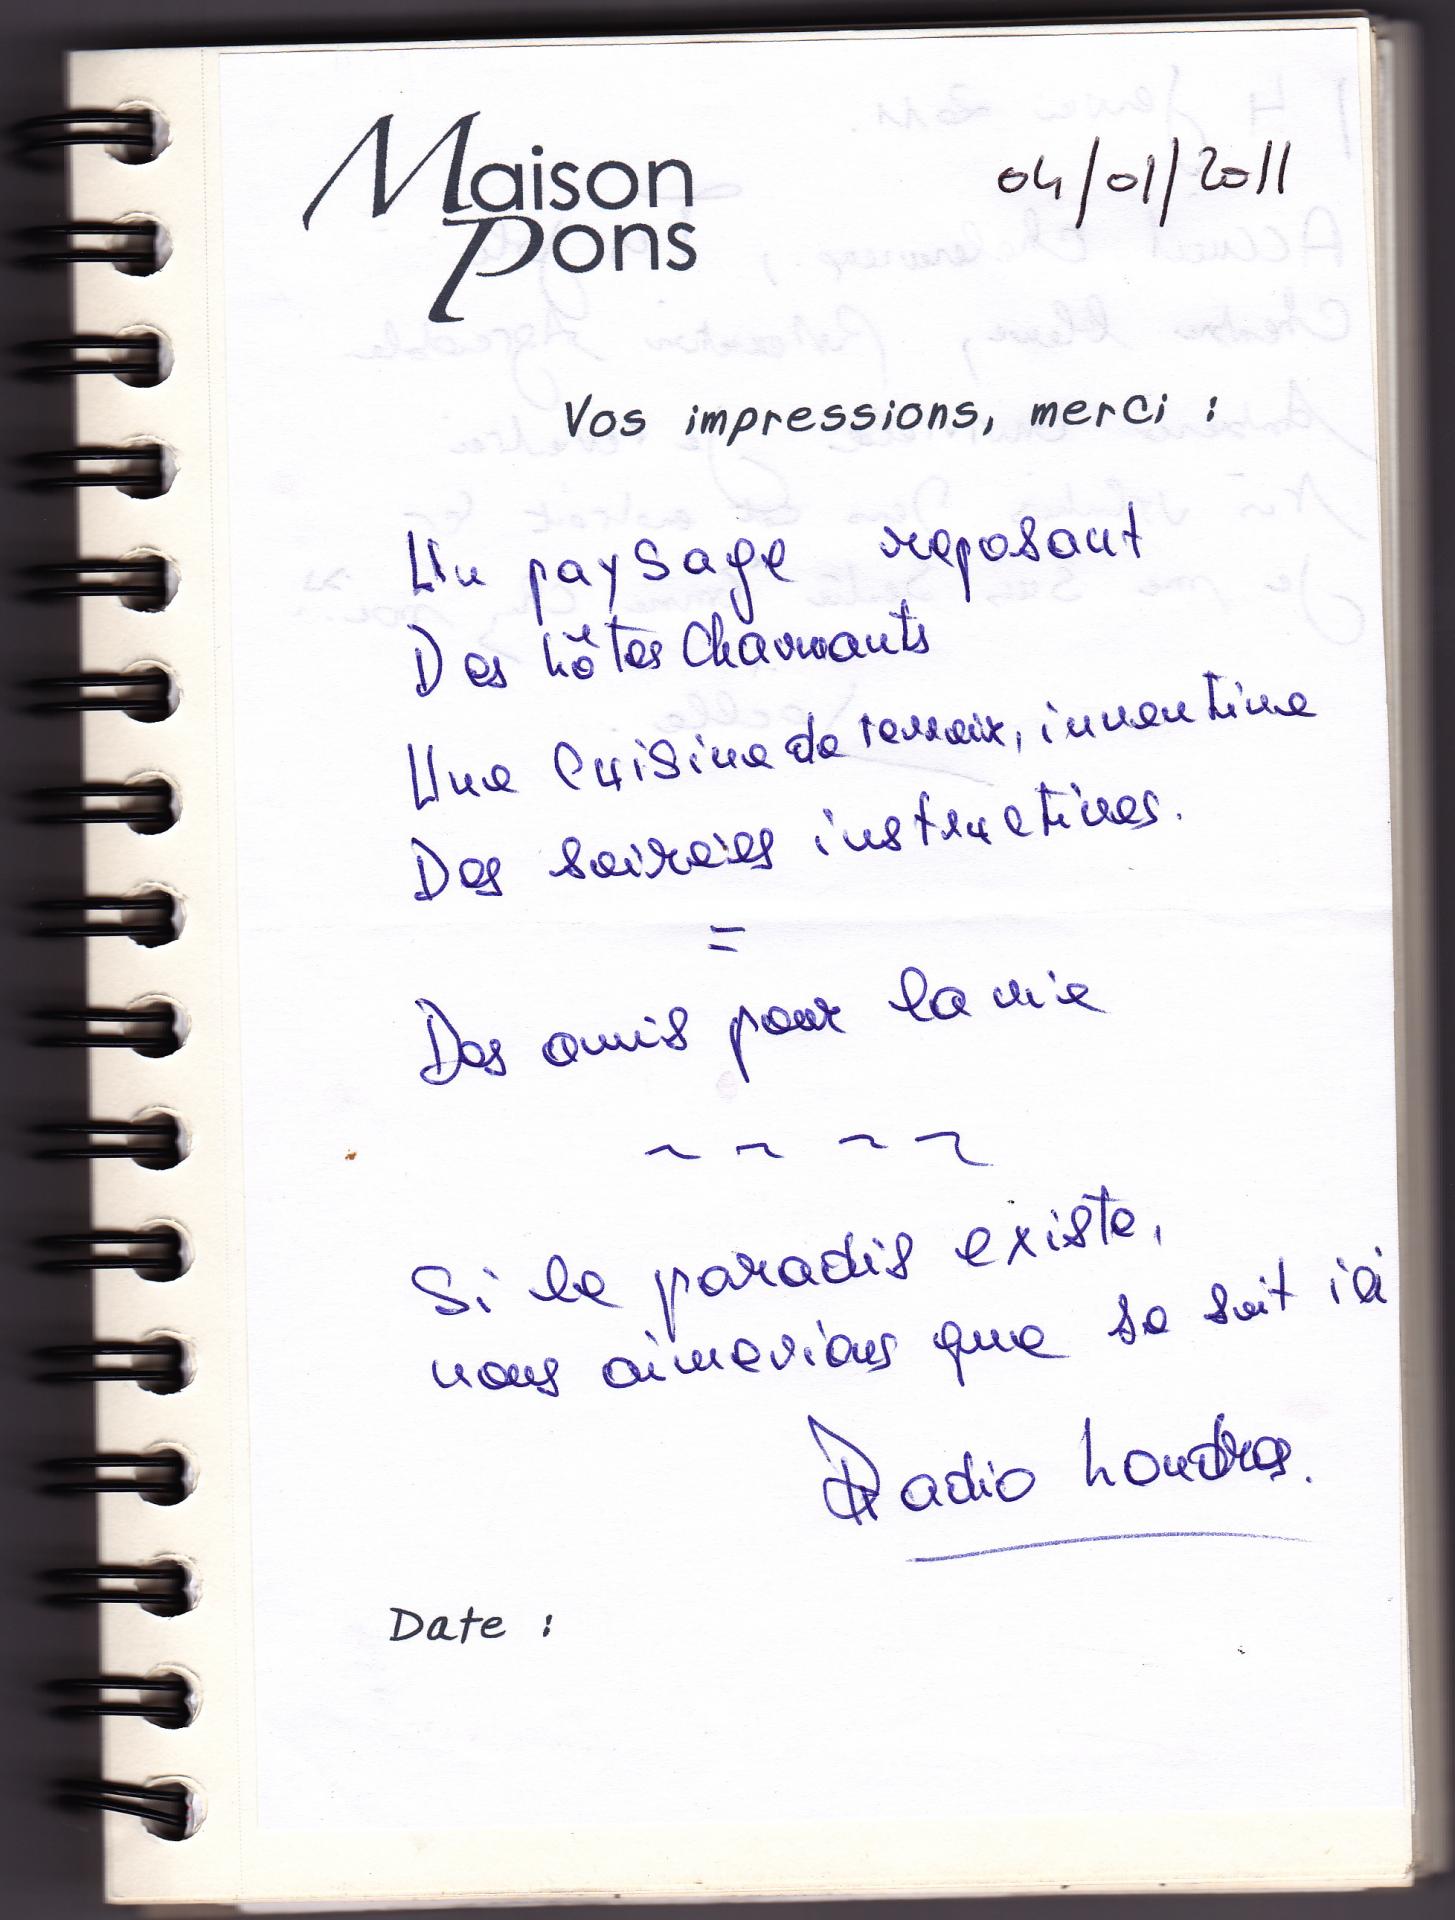 Maison
Pons
04/01/2011
Vos impressions, merci :
Un paysage reposant
Des hôtes charmants
Une cuisine de terroir, inventive
Des soirées instructives.
=
Des amis pour la vie
~ ~ ~ ~
Si le paradis existe,
nous aimerions que se soit ici
Radio Londres.
Date :